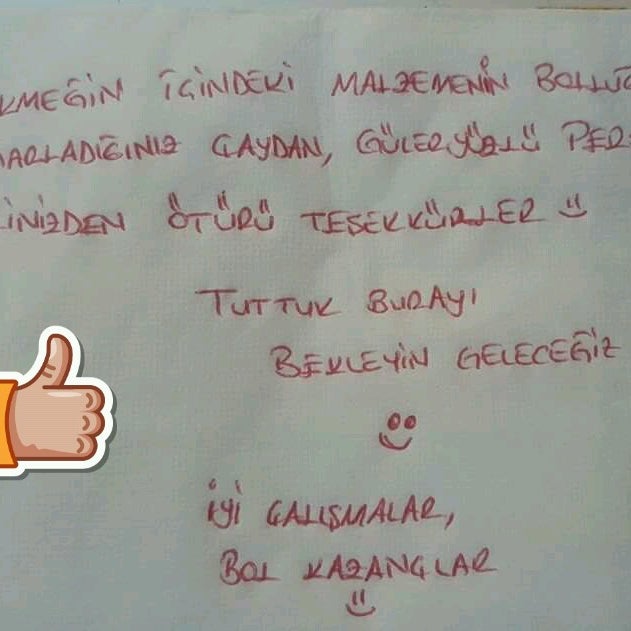 KMEĞİN İÇİNDEKİ MALZEMENİN BOLLUĞ
ARLADIĞINIZ ÇAYDAN, GÜLERYÜZLÜ PER
İNİZDEN ÖTÜRÜ TEŞEKKÜRLER
TUTTUK BURAYI
BEKLEYİN GELECEĞİZ
İYİ ÇALIŞMALAR,
BOL KAZANÇLAR